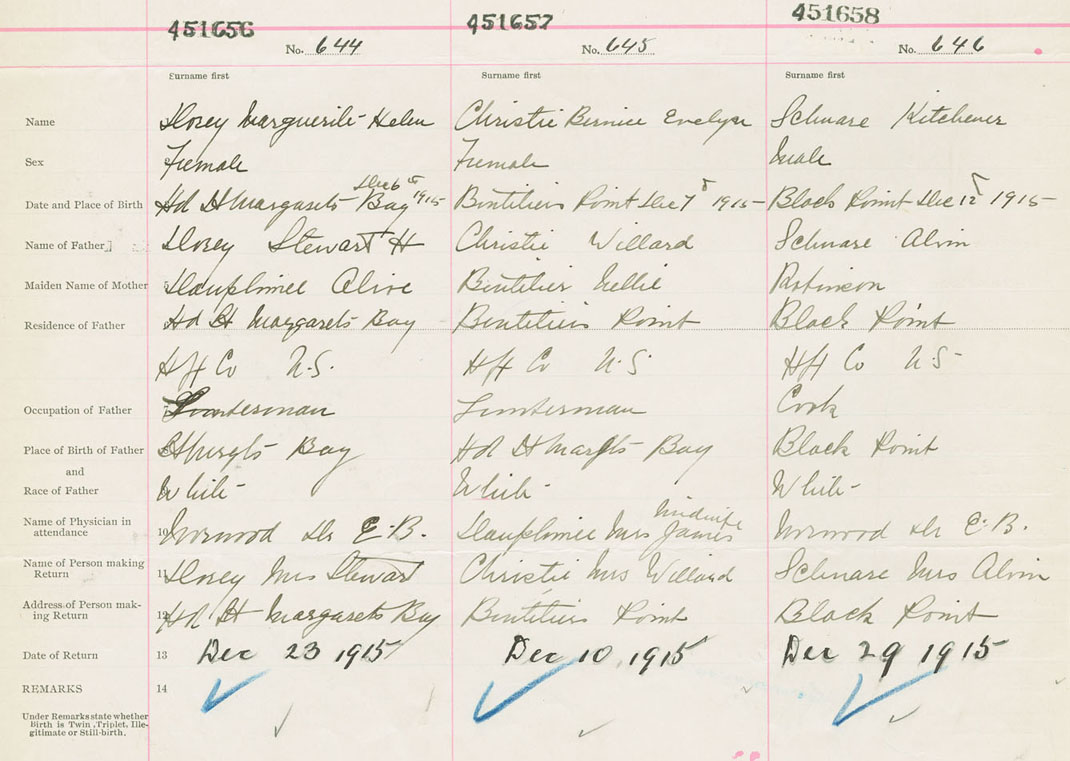 451656 451657 451658
No. 644 No. 645 No. 646
Surname first Surname first Surname first
Name Dorey Marguerite Helen Christie Bernice Evelyn Schnare Kitchener
Sex Female Female Male
Date and Place of Birth Hd St Margarets Bay Dec 6th 1915 Boutiliers Point Dec 7th 1915 Black Point Dec 12th 1915
Name of Father Dorey Stewart H Christie Willard Schnare Alvin
Maiden Name of Mother Dauphinee Olive Boutilier Nellie Robinson
Residence of Father Hd St Margarets Bay Boutiliers Point Black Point
Hfx Co N.S. Hfx Co N.S. Hfx Co N.S
Occupation of Father 7 Lumberman Lumberman Cook
Place of Birth of Father St Margts Bay Hd St Margts Bay Black Point
and
Race of Father White White White
Name of Physician in
attendance 10 Norwood Dr E.B. Dauphinee Mrs James midwife Norwood Dr E.B.
Name of Person making
Return 11 Dorey Mrs Stewart Christie Mrs Willard Schnare Mrs Alvin
Address of Person mak-
ing Return 12 Hd St Margarets Bay Boutiliers Point Black Point
Date of Return 13 Dec 23 1915 Dec 10, 1915 Dec 29 1915
REMARKS 14
Under Remarks state whether
Birth is Twin, Triplet, Ille-
gitimate or Still-birth.